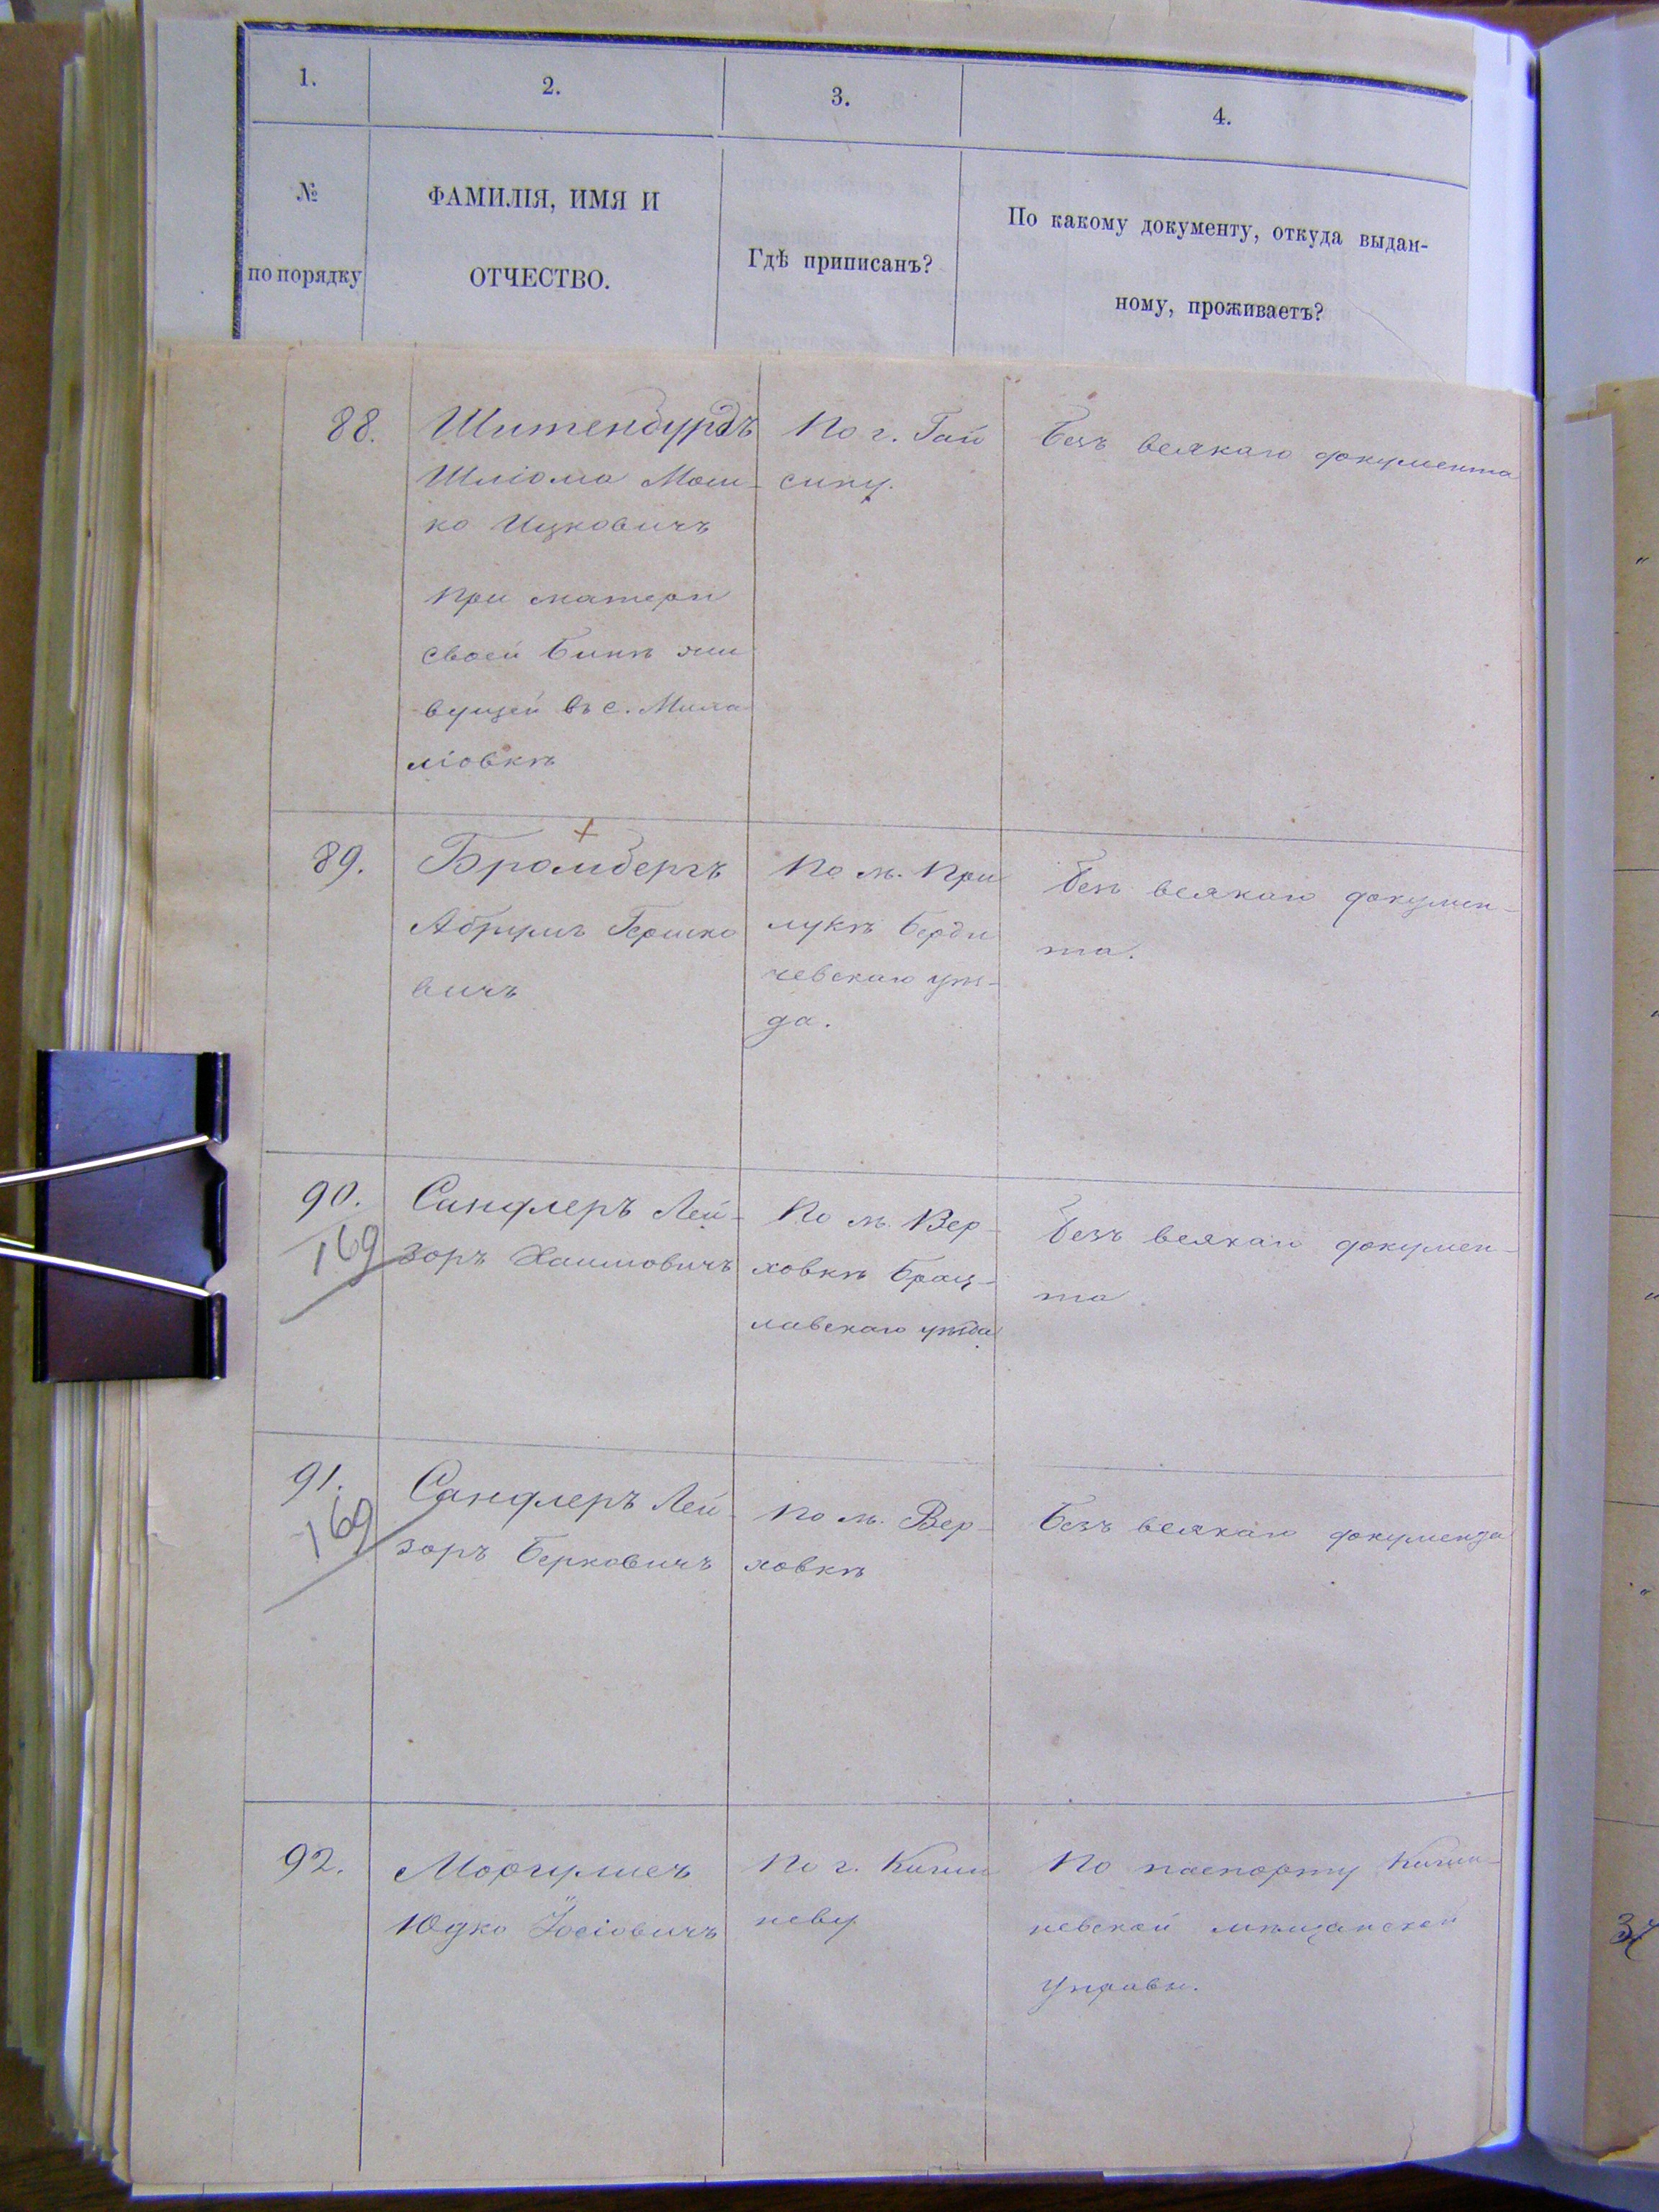 1.
2.
3.
4.
№
по порядку
ФАМИЛІЯ, ИМЯ И
ОТЧЕСТВО.
Гдѣ приписанъ?
По какому документу, откуда выдан-
ному, проживаетъ?
88.
Шліома Мош-
ко Ицковичъ
При матери
своей Бинѣ жи
вущей въ с.
ліовкѣ
По г. Гай
сину.
Безъ всякаго документа
89.
Бромбергъ
Абрумъ Гершко
вичъ
По м. При
лукѣ Берди
чевскаго уѣз-
да.
Безъ всякаго докумен-
та.
90.
169
Сандлеръ Лей-
зоръ Хаимовичъ
По м. Вер-
ховкѣ Брац-
лавскаго уѣзда
Безъ всякаго докумен-
та
91.
169
Сандлеръ Лей-
зоръ Берковичъ
По м. Вер-
ховкѣ
Безъ всякаго документа
92.
Моргулисъ
Юдко Іосіовичъ
По г. Киши
неву
По паспорту Киши-
невской мѣщанской
Управы.